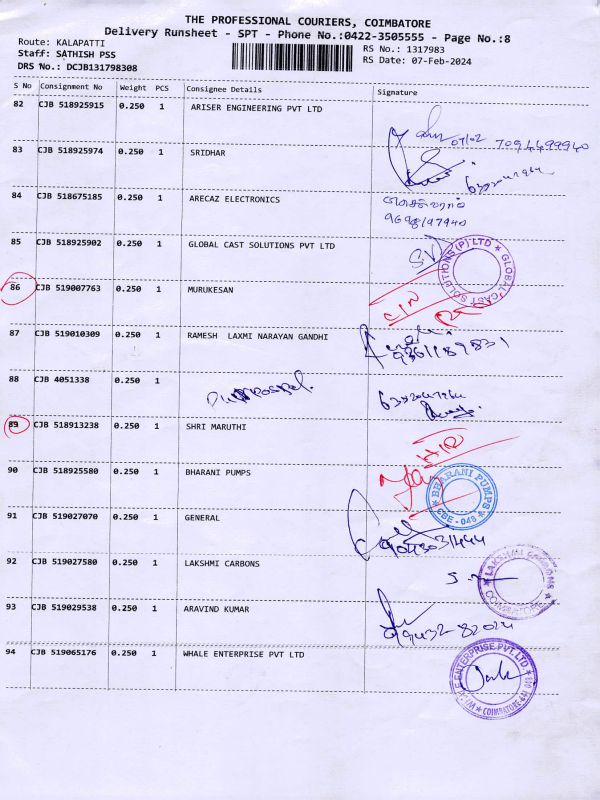 THE PROFESSIONAL COURIERS, COIMBATORE
Delivery Runsheet - SPT - Phone No.:0422-3505555 - Page No.:8
Route: KALAPATTI
RS No.: 1317983
Staff: SATHISH PSS
RS Date: 07-Feb-2024
DRS No.: DCJB131798308
S No Consignment No Weight PCS Consignee Details Signature
82 CJB 518925915 0.250 1 ARISER ENGINEERING PVT LTD
07/02 7094499940
83 CJB 518925974 0.250 1 SRIDHAR
84 CJB 518675185 0.250 1 ARECAZ ELECTRONICS
85 CJB 518925902 0.250 1 GLOBAL CAST SOLUTIONS PVT LTD
GLOBAL CAST SOLUTIONS (P) LTD
86 CJB 519007763 0.250 1 MURUKESAN
CIN
87 CJB 519010309 0.250 1 RAMESH LAXMI NARAYAN GANDHI
9361189831
88 CJB 4051338 0.250 1
89 CJB 518913238 0.250 1 SHRI MARUTHI
90 CJB 518925580 0.250 1 BHARANI PUMPS
BHARANI PUMPS
CBE - 048
91 CJB 519027070 0.250 1 GENERAL
9043031444
92 CJB 519027580 0.250 1 LAKSHMI CARBONS
LAKSHMI CARBONS
COIMBATORE
93 CJB 519029538 0.250 1 ARAVIND KUMAR
94 CJB 519065176 0.250 1 WHALE ENTERPRISE PVT LTD
WHALE ENTERPRISE PVT. LTD.